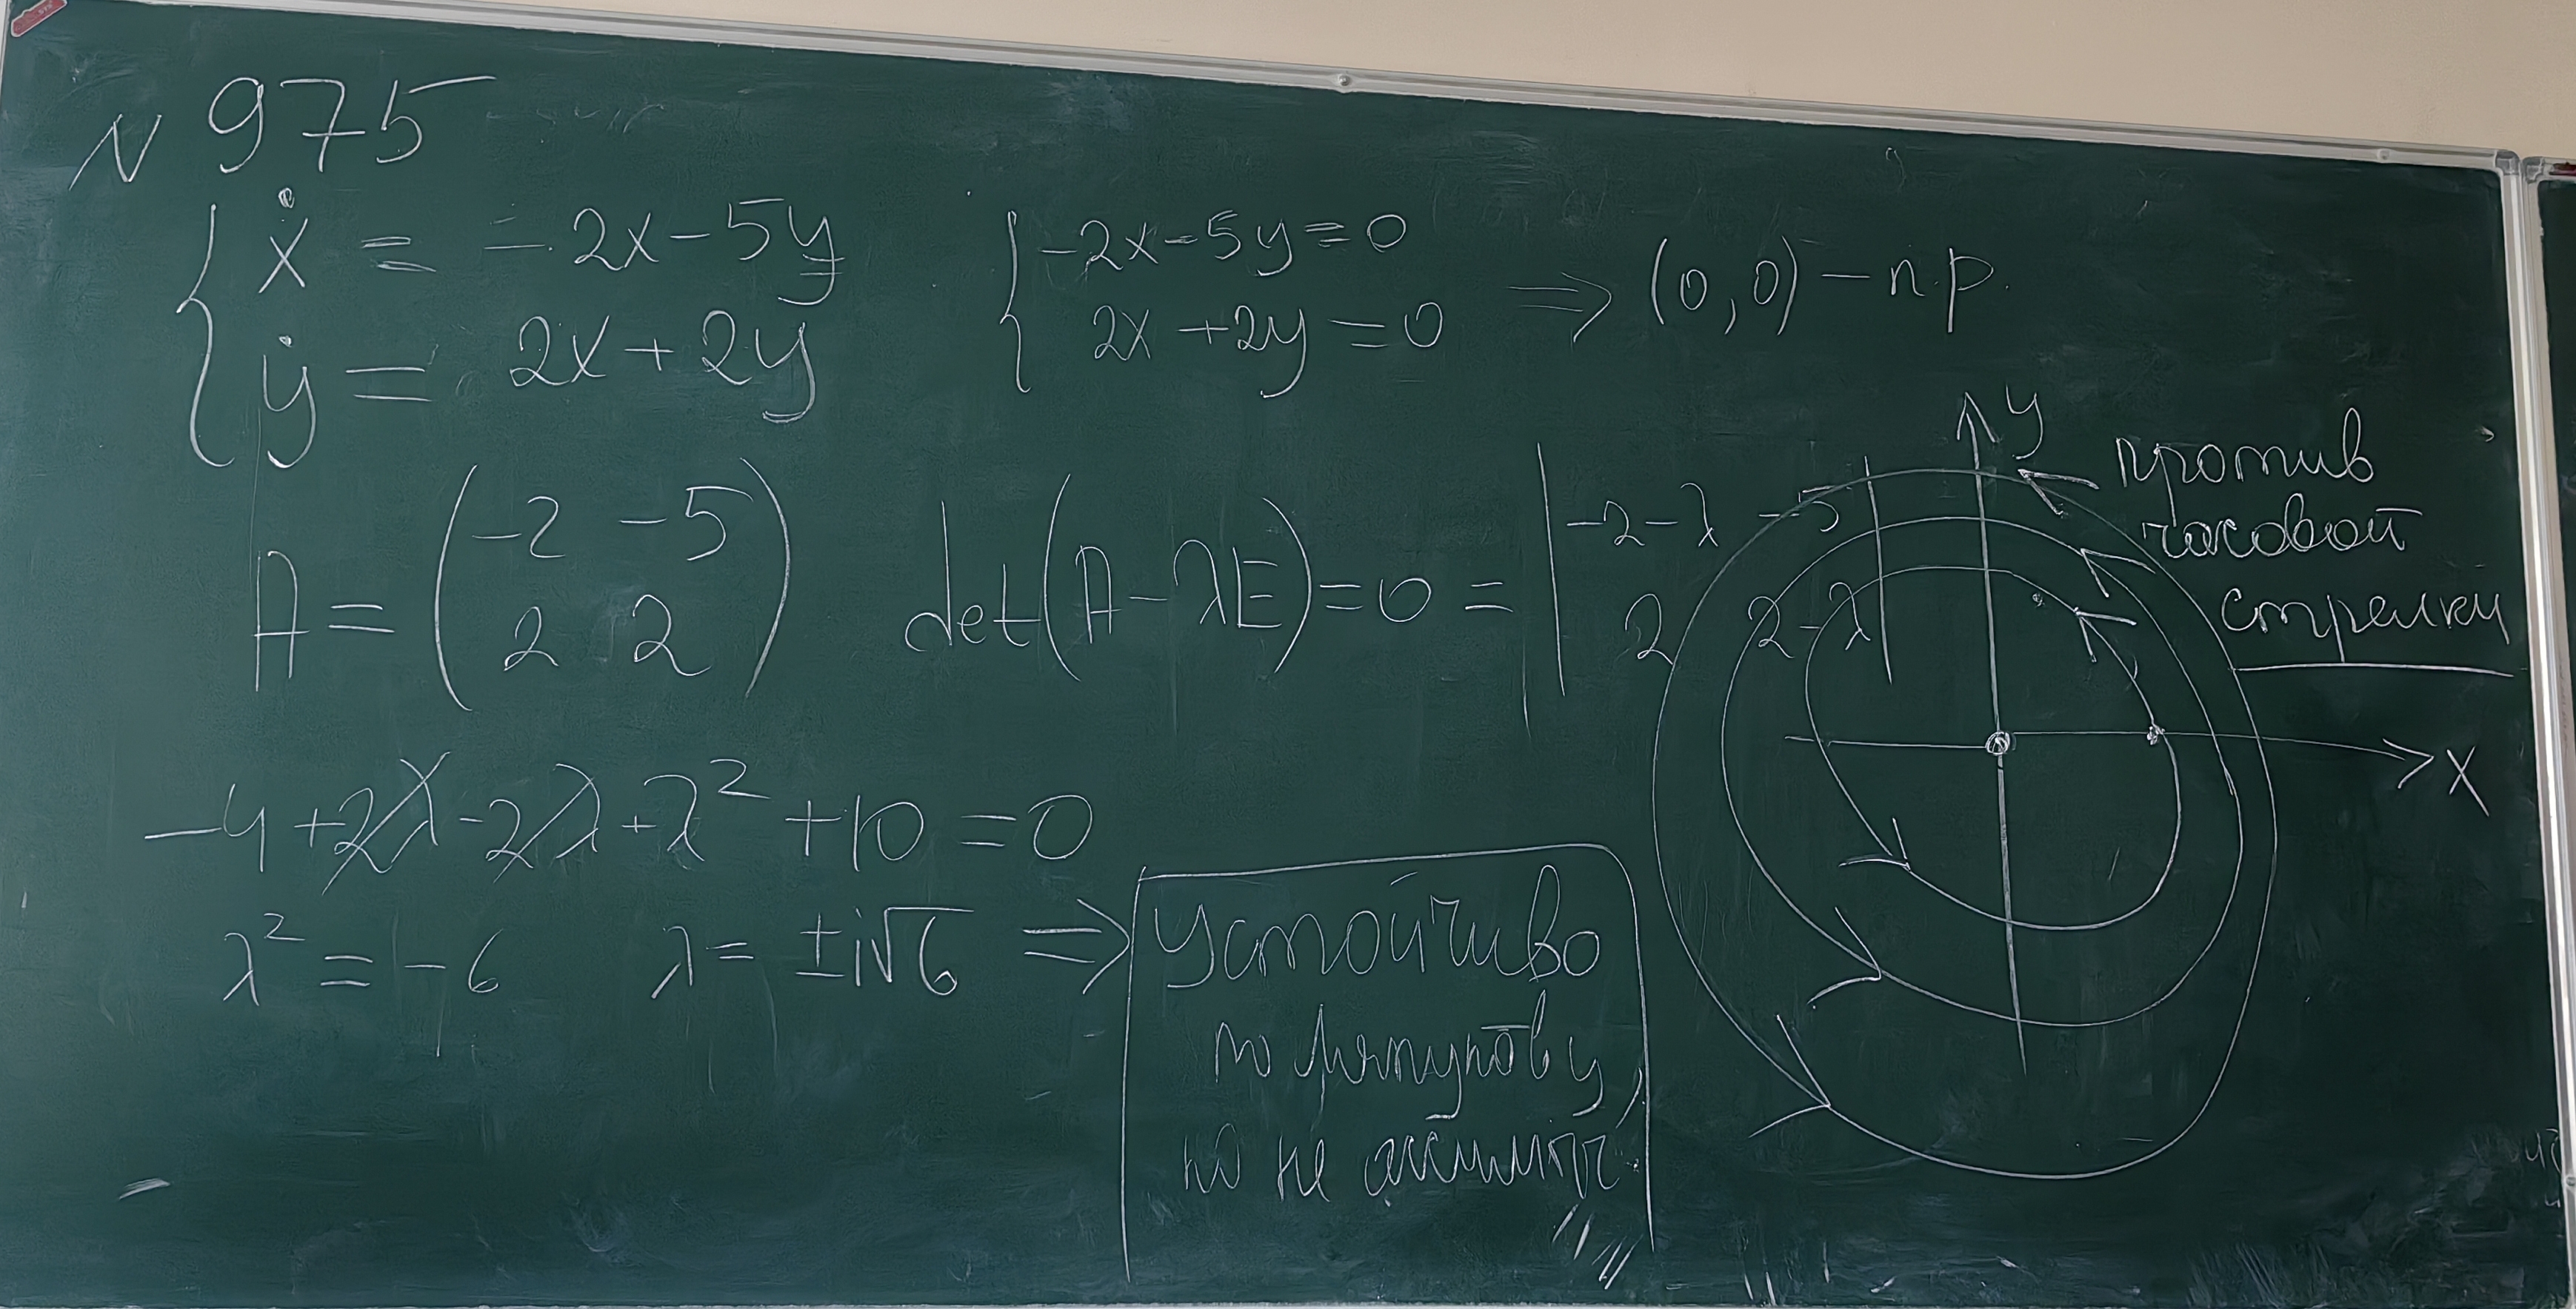 N 975
{ ẋ = -2x-5y
ẏ = 2x+2y
{ -2x-5y=0
2x+2y=0
⇒ (0,0) - п.р.
A = ( -2 -5
2 2 )
det(A-λE)=0 = | -2-λ -5
2 2-λ |
-4+2λ-2λ+λ² +10 =0
λ² = -6 λ= ±i√6 ⇒
Устойчиво
по Ляпунову,
но не асимпт.
y
против
часовой
стрелки
x